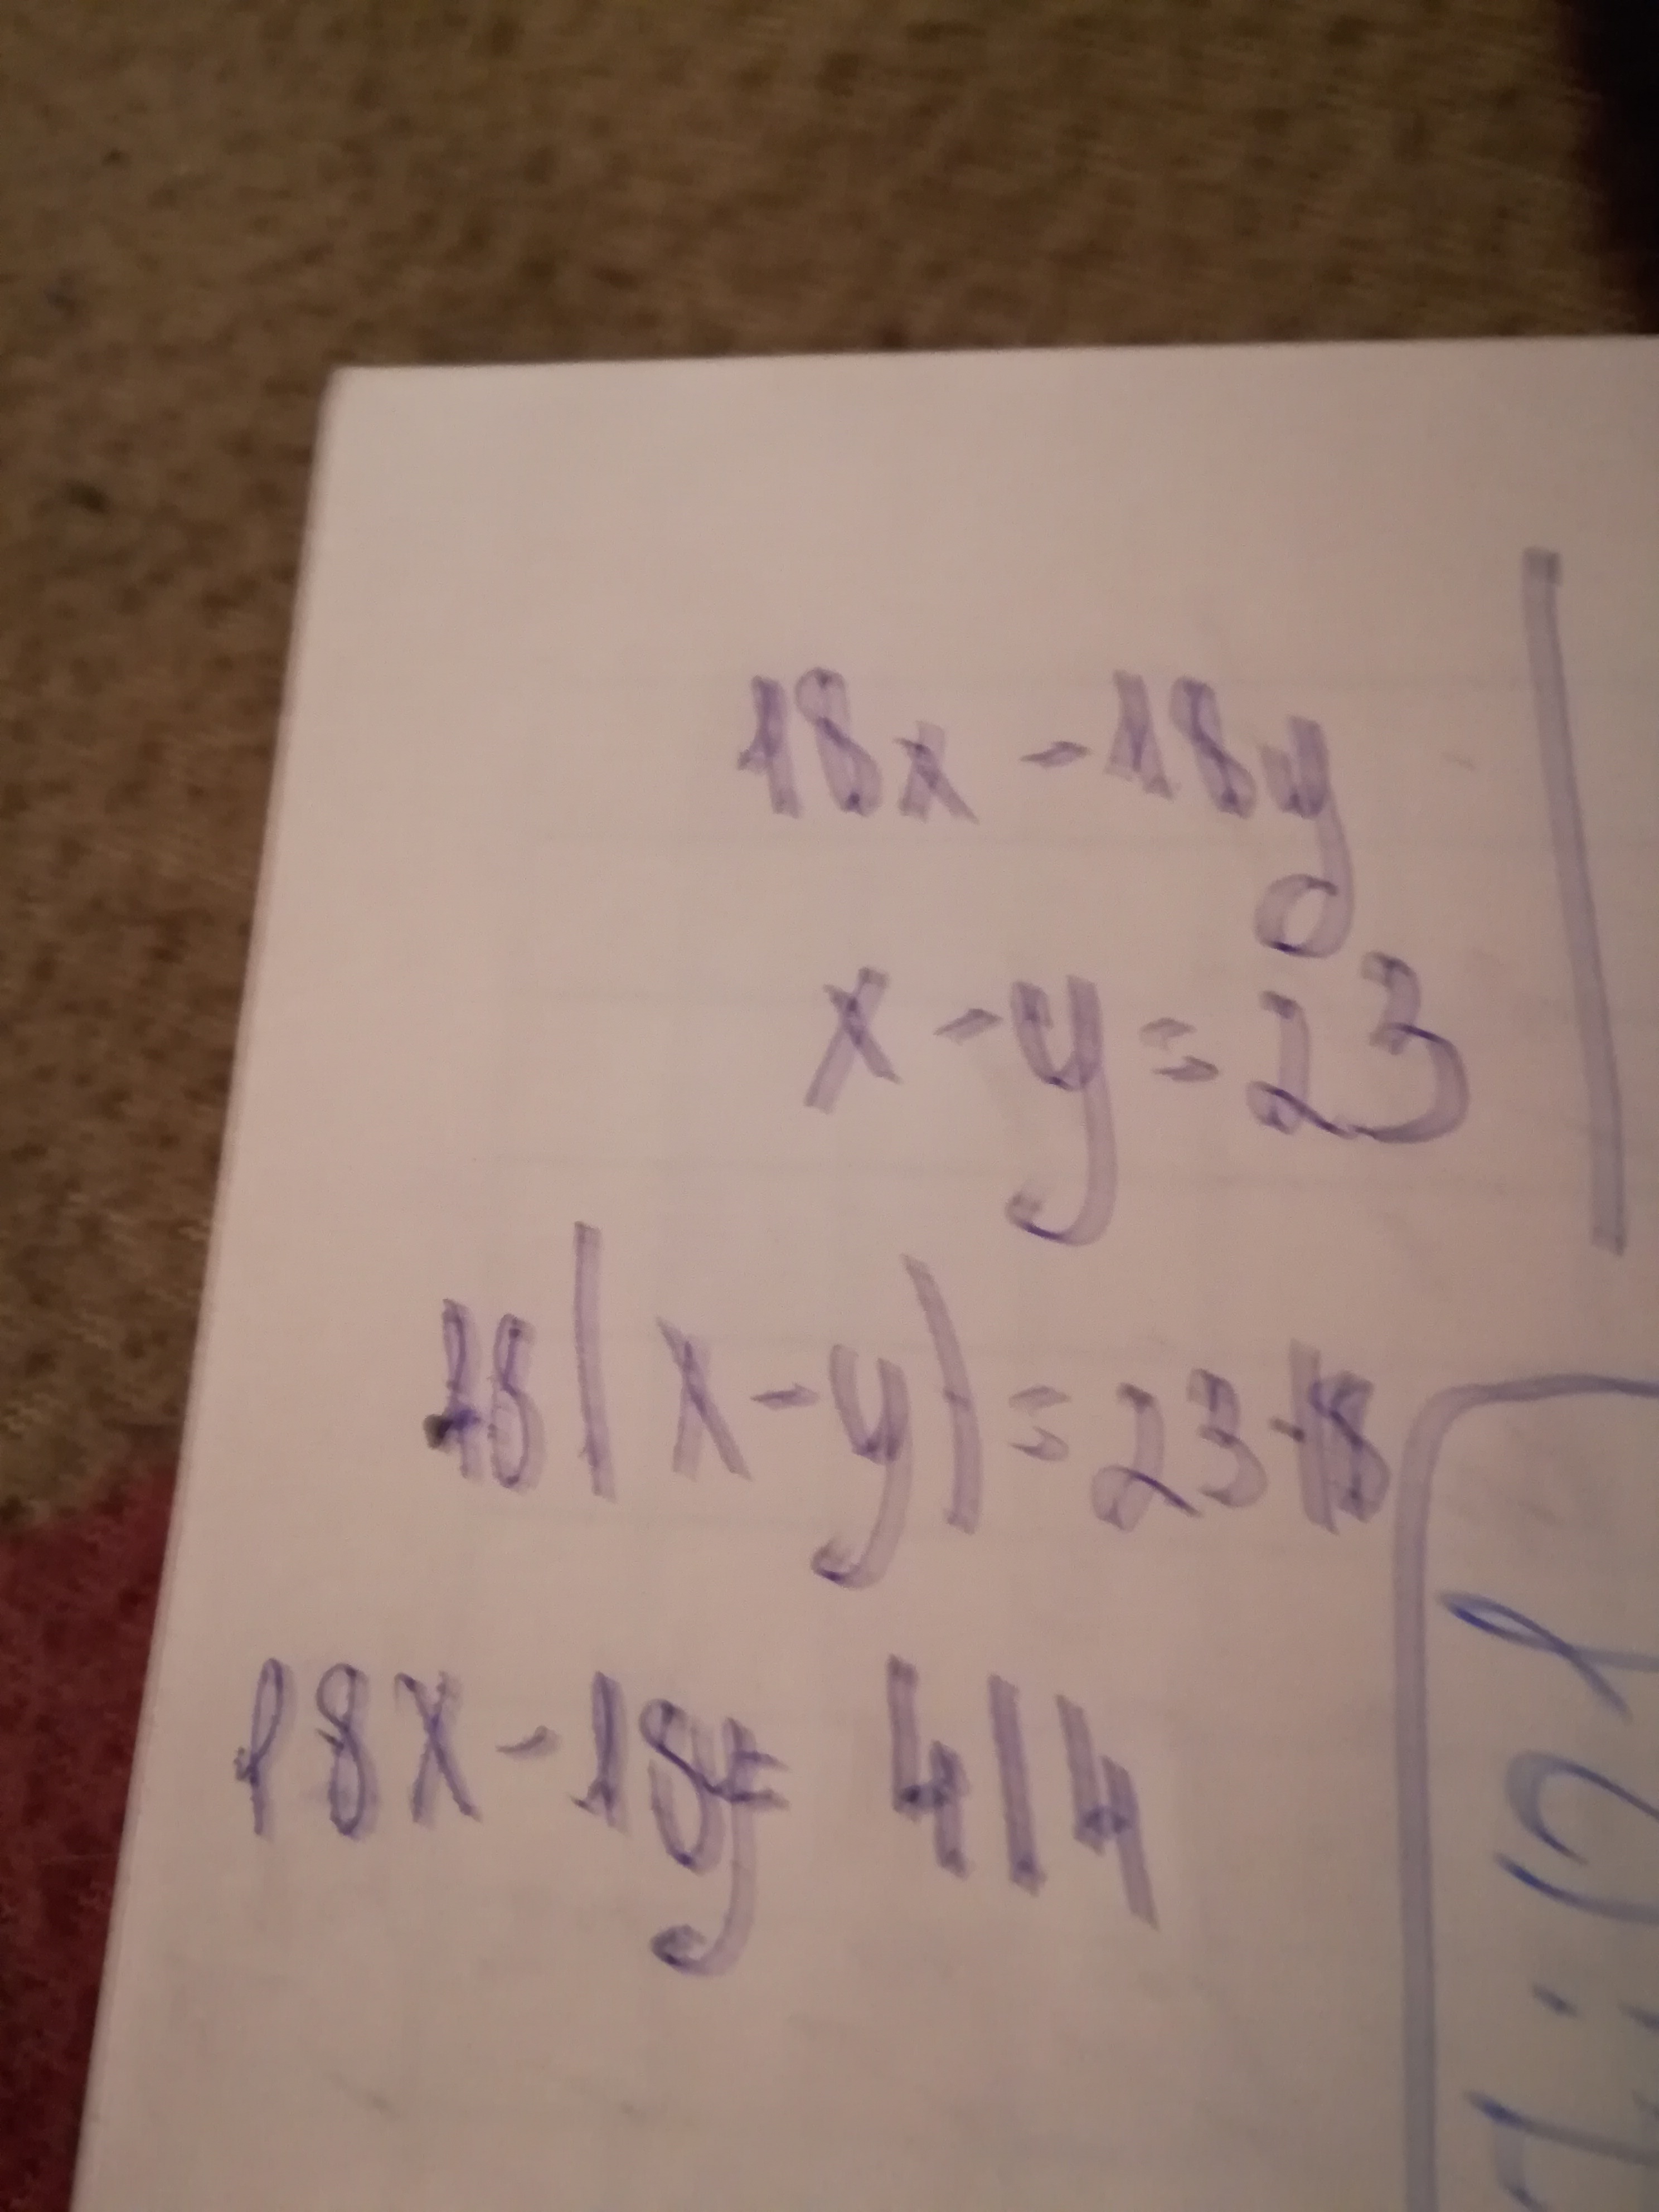 18x - 18y
x - y = 23
18(x - y) = 23·18
18x - 18y = 414